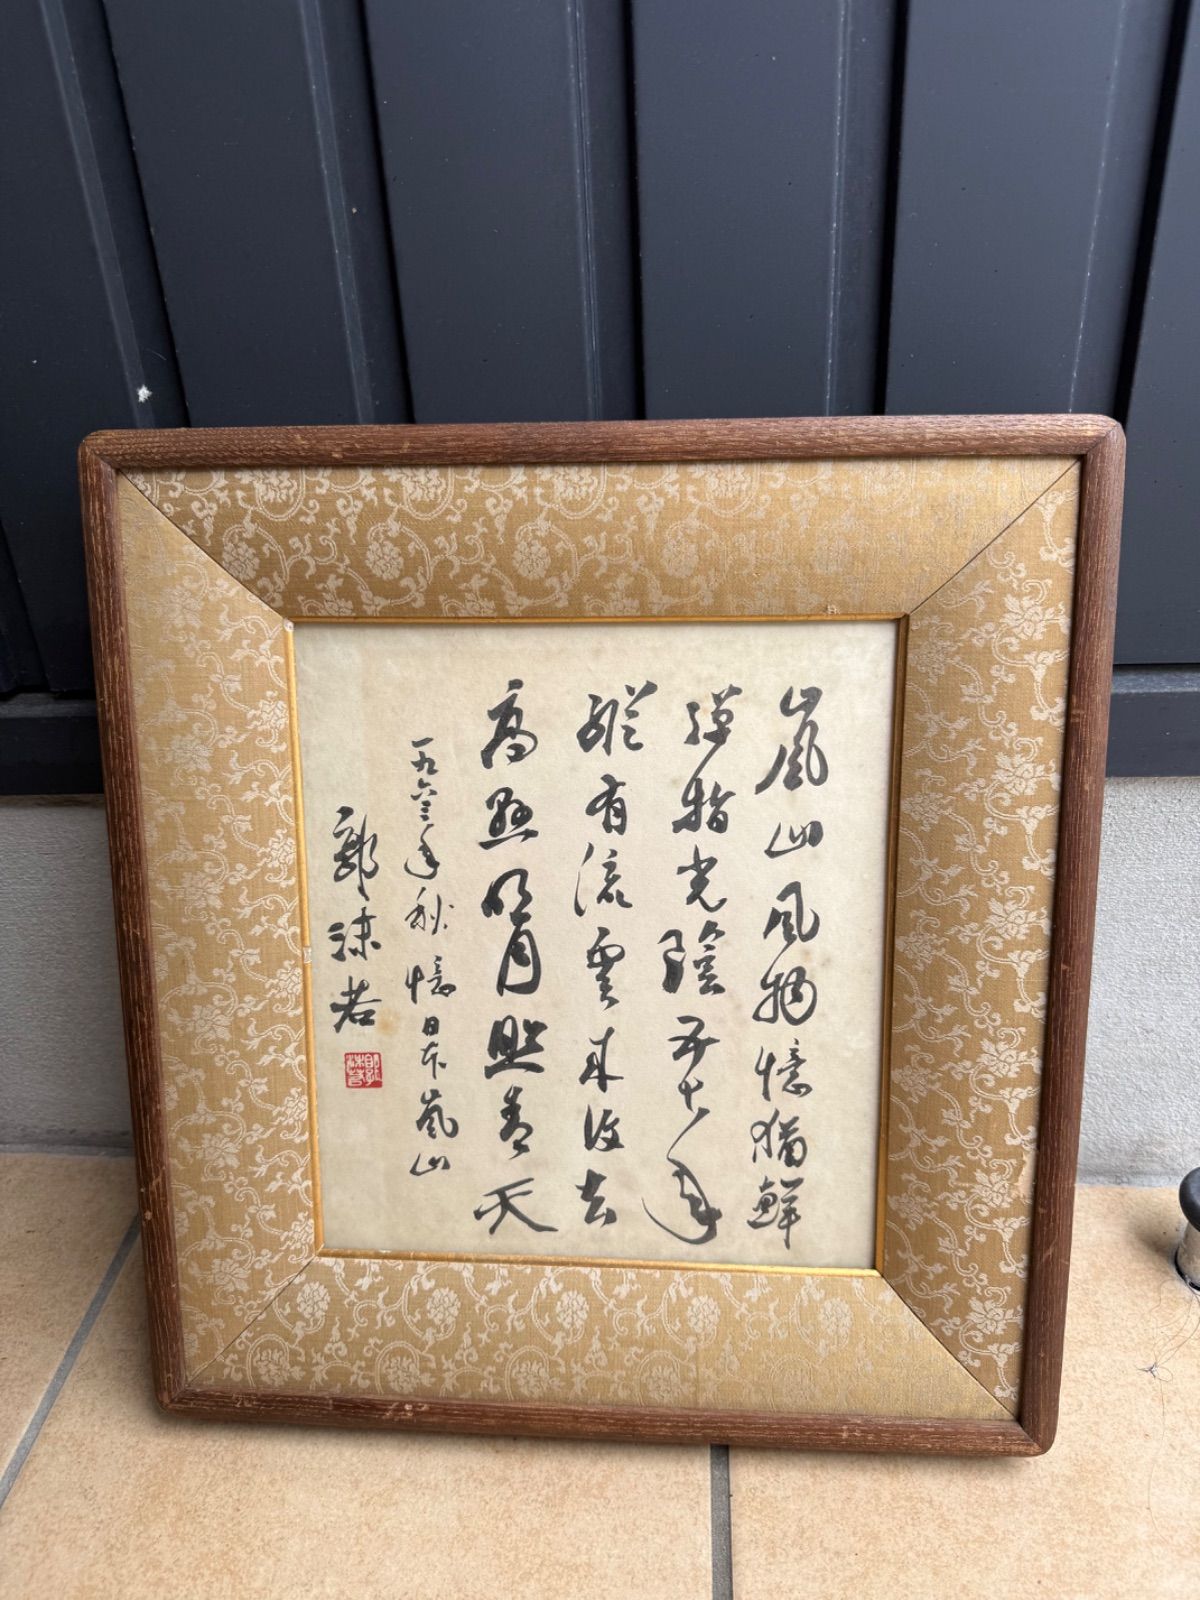 嵐山風物憶猶鮮
彈指光陰五十年
縱有流雲来復去
高懸明月照青天
一九六三年秋憶日本嵐山
郭沫若
郭沫若